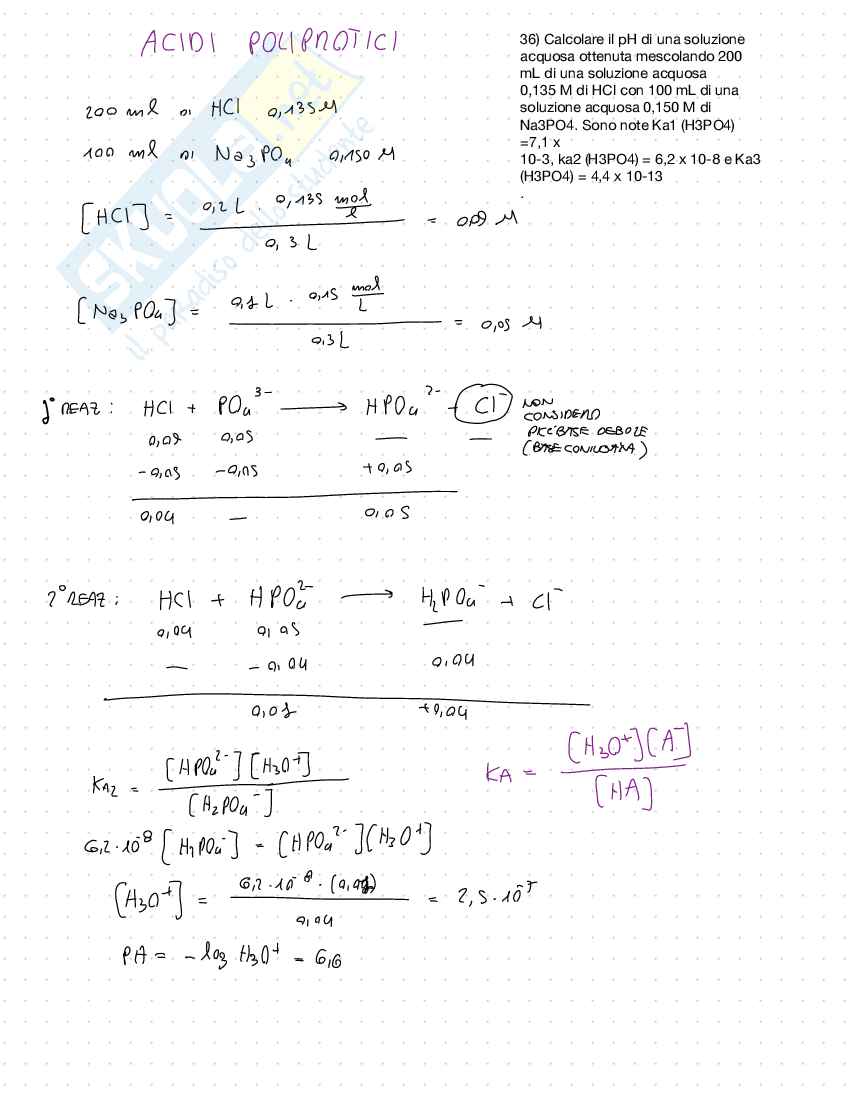 ACIDI POLIPROTICI
36) Calcolare il pH di una soluzione
acquosa ottenuta mescolando 200
mL di una soluzione acquosa
0,135 M di HCl con 100 mL di una
soluzione acquosa 0,150 M di
Na3PO4. Sono note Ka1 (H3PO4)
=7,1 x
10-3, ka2 (H3PO4) = 6,2 x 10-8 e Ka3
(H3PO4) = 4,4 x 10-13
.
200 ml di HCl 0,135 M
100 ml di Na3PO4 0,150 M
[HCl] = 0,2 L · 0,135 mol/l / 0,3 L = 0,09 M
[Na3PO4] = 0,1 L · 0,15 mol/L / 0,3 L = 0,05 M
1° REAZ: HCl + PO4^3- → HPO4^2- + Cl^-
NON
CONSIDERO
BASE DEBOLE
(BASE CONIUGATA)
0,09 0,05 — —
-0,05 -0,05 +0,05
0,04 — 0,05
2° REAZ: HCl + HPO4^2- → H2PO4^- + Cl^-
0,04 0,05 —
— -0,04 0,04
0,01 +0,04
KA2 = [HPO4^2-][H3O+] / [H2PO4^-]
KA = [H3O+][A-] / [HA]
6,2·10^-8 [H2PO4^-] = [HPO4^2-][H3O+]
[H3O+] = 6,2·10^-8 · (0,04) / 0,04 = 2,5·10^-7
PH = -log H3O+ = 6,6
SKUOLA.net
il paradiso dello studente